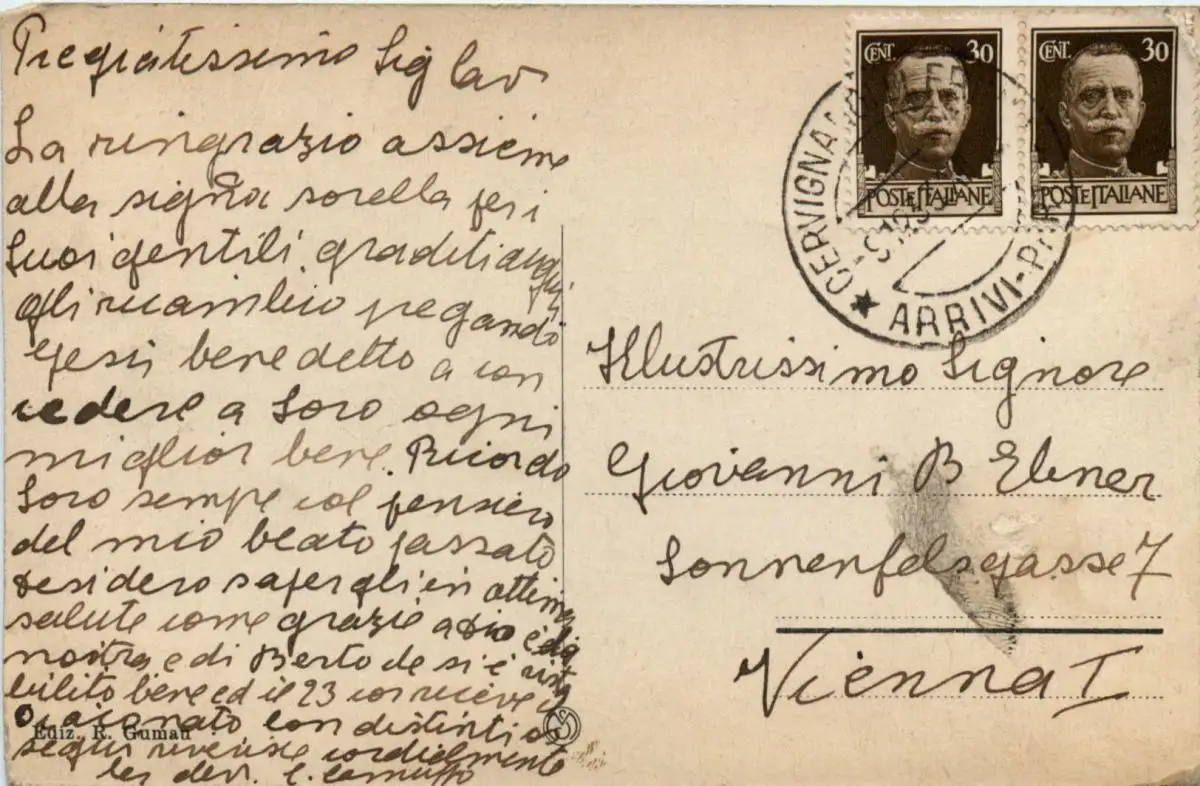 Pregiatissimo Sig
La ringrazio assieme
alla sorella per i
Suoi gentili graditi auguri
gli ricambio pregando
Gesù benedetto a con
cedere a Loro ogni
miglior bene. Ricordo
Loro sempre col pensiero
del mio beato passato
desidero saperli in ottima
salute come grazie a Dio è
nostra e di Berto
bene ed il 23 corr riceve
con distinti
cordialmente
dev.
Ediz. R. Gumau
CENT. 30
POSTE ITALIANE
CENT. 30
POSTE ITALIANE
ARRIVI
Illustrissimo Signore
Giovanni B Ebner
Sonnenfelsgasse 7
Vienna I